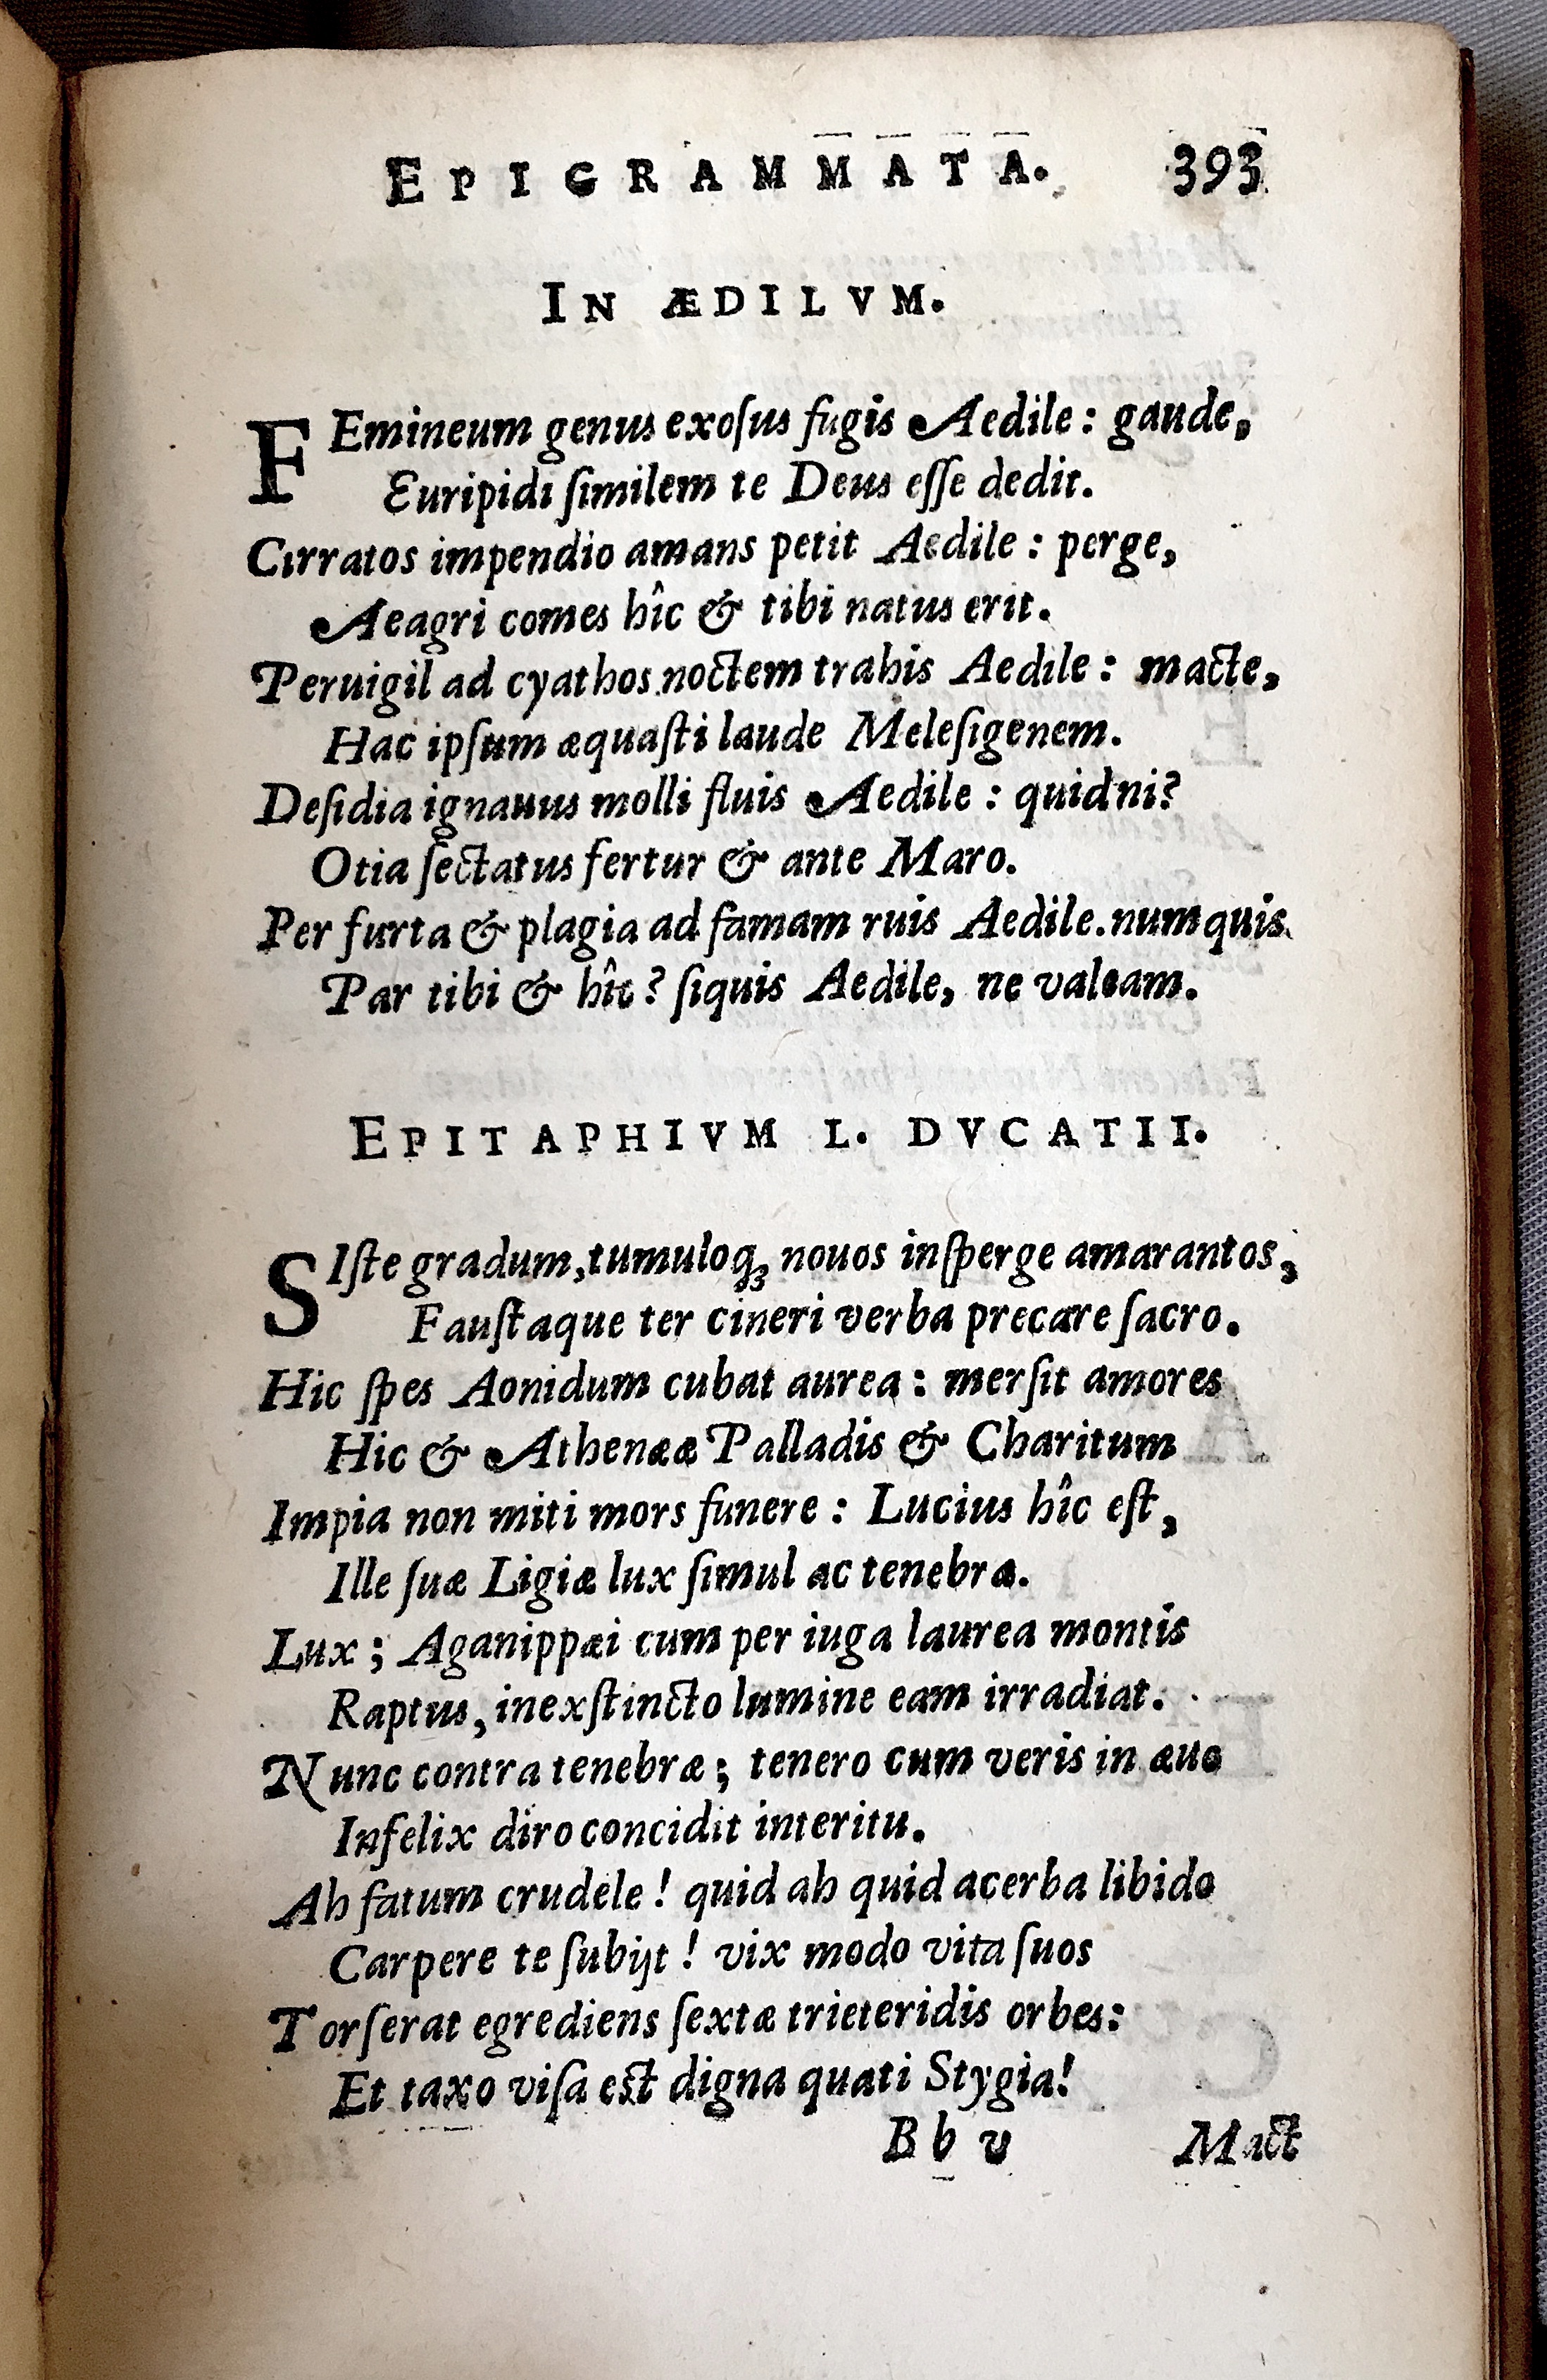 EPIGRAMMATA. 393
IN ÆDILVM.
FEmineum genus exoſus fugis Aedile: gaude,
Euripidi ſimilem te Deus eſſe dedit.
Cirratos impendio amans petit Aedile: perge,
Aeagri comes hîc & tibi natus erit.
Peruigil ad cyathos noctem trahis Aedile: macte,
Hac ipſum æquaſti laude Meleſigenem.
Deſidia ignauus molli fluis Aedile: quidni?
Otia ſectatus fertur & ante Maro.
Per furta & plagia ad famam ruis Aedile. numquis
Par tibi & hîc? ſiquis Aedile, ne valeam.
EPITAPHIVM L. DVCATII.
SIſte gradum, tumuloq; nouos inſperge amarantos,
Fauſtaque ter cineri verba precare ſacro.
Hic ſpes Aonidum cubat aurea: merſit amores
Hic & Athenææ Palladis & Charitum
Impia non miti mors funere: Lucius hîc eſt,
Ille ſuæ Ligiæ lux ſimul ac tenebra.
Lux; Aganippæi cum per iuga laurea montis
Raptus, inexſtincto lumine eam irradiat.
Nunc contra tenebræ; tenero cum veris in æuo
Infelix diro concidit interitu.
Ah fatum crudele! quid ah quid acerba libido
Carpere te ſubijt! vix modo vita ſuos
Torſerat egrediens ſextæ trieteridis orbes:
Et taxo viſa eſt digna quati Stygia!
Bb v Mact